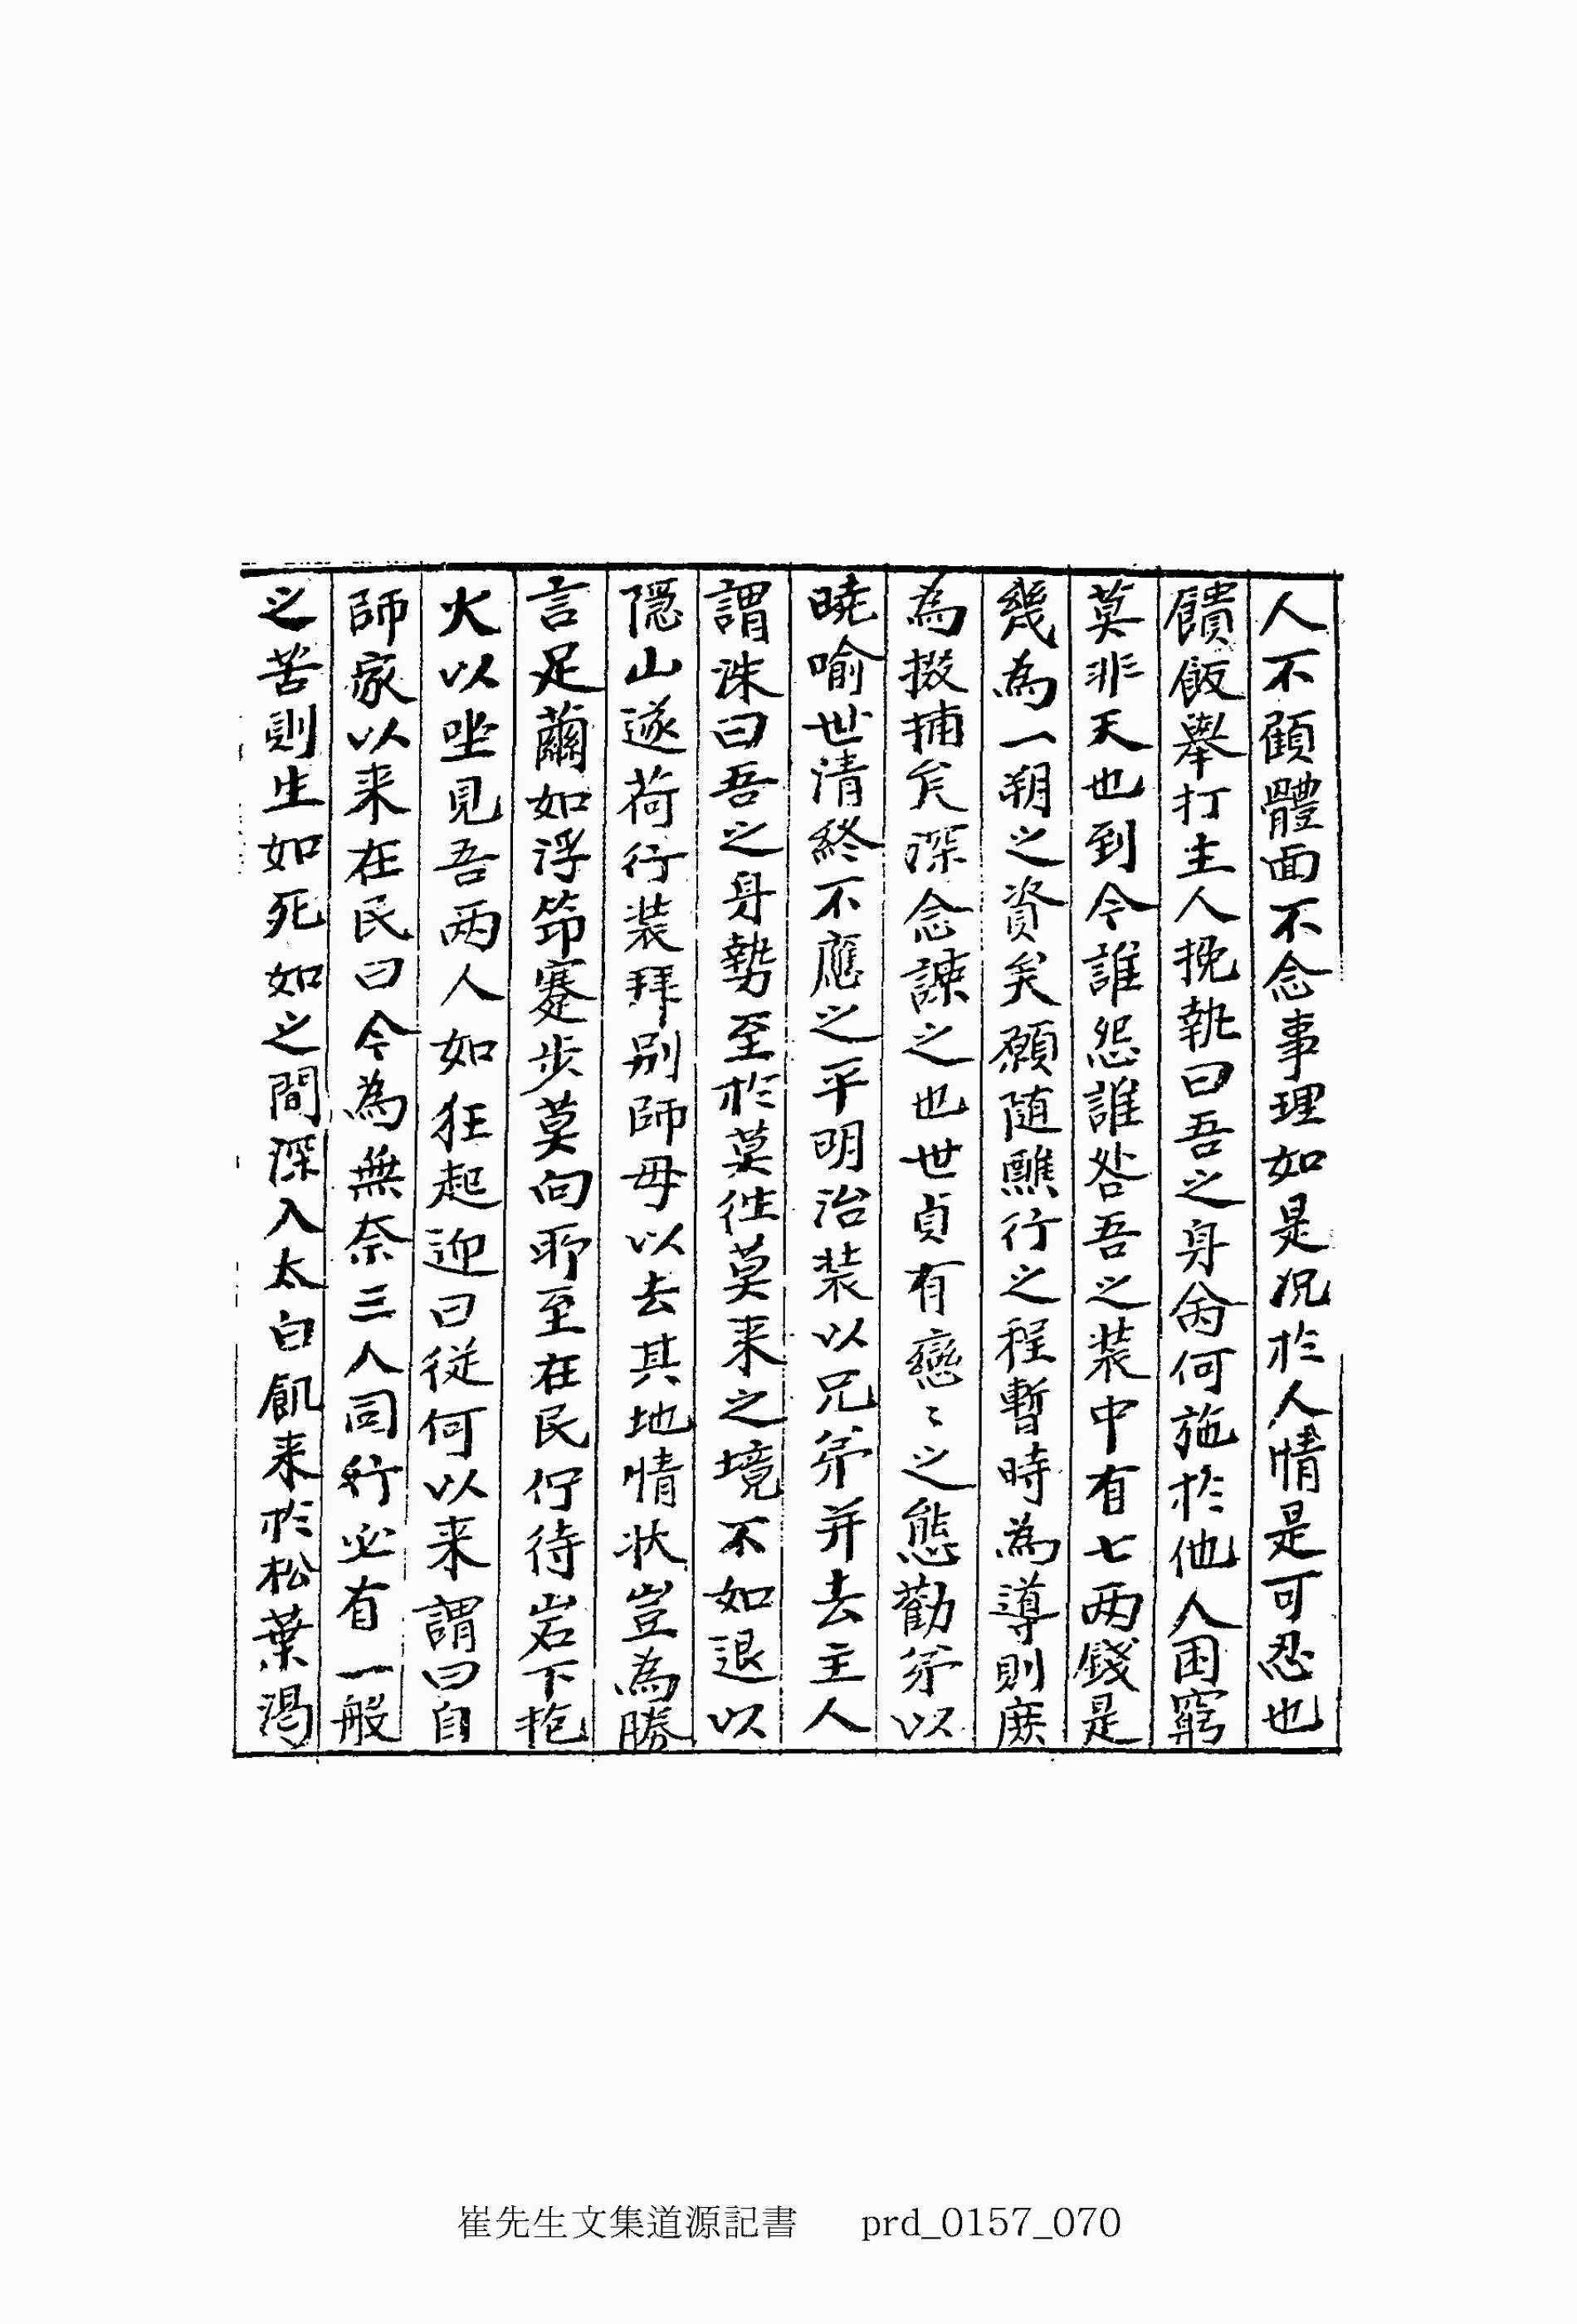 人不顧體面不念事理如是况於人情是可忍也
饋飯擧打主人挽執曰吾之身尙何施於他人困窮
莫非天也到今誰怨誰咎吾之装中有七両錢是
幾爲一朔之資矣願随驥行之程暫時爲導則庶
爲掇捕矣深念諫之也世貞有戀〻之態勸弟以
曉喻世清終不應之平明治装以兄弟并去主人
謂洙曰吾之身勢至於莫徃莫来之境不如退以
隠山遂荷行装拜别師母以去其地情状豈爲勝
言足繭如浮節蹇步莫向耶至在民佇待岩下抱
火以坐見吾両人如狂起迎曰從何以来謂曰自
師家以来在民曰今爲無奈三人同行必有一般
之苦則生如死如之間深入太白飢来於松葉渴
崔先生文集道源記書 prd_0157_070